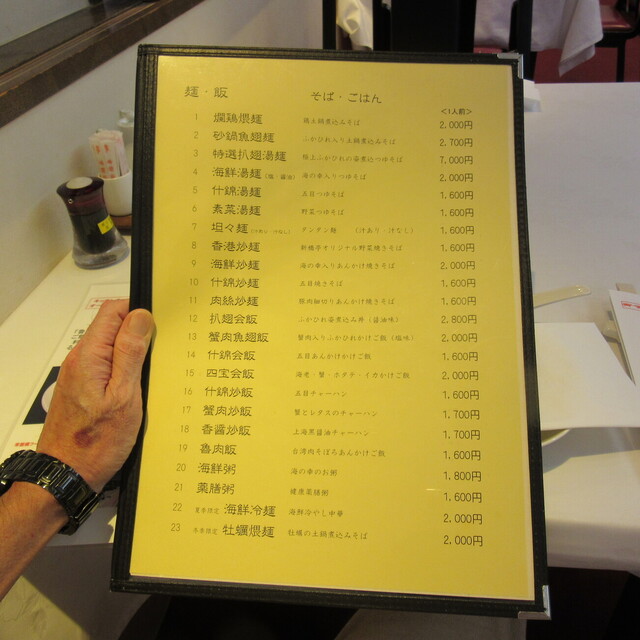 麺・飯 そば・ごはん
<1人前>
1 爛鶏煨麺 鶏土鍋煮込みそば 2,000円
2 砂鍋魚翅麺 ふかひれ入り土鍋煮込みそば 2,700円
3 特選扒翅湯麺 極上ふかひれの姿煮込つゆそば 7,000円
4 海鮮湯麺 (塩・醤油) 海の幸入りつゆそば 2,000円
5 什錦湯麺 五目つゆそば 1,600円
6 素菜湯麺 野菜つゆそば 1,600円
7 坦々麺 (汁あり・汁なし) タンタン麺 (汁あり・汁なし) 1,600円
8 香港炒麺 新橋亭オリジナル野菜焼きそば 1,600円
9 海鮮炒麺 海の幸入りあんかけ焼きそば 2,000円
10 什錦炒麺 五目焼きそば 1,600円
11 肉絲炒麺 豚肉細切りあんかけ焼そば 1,600円
12 扒翅会飯 ふかひれ姿煮込み丼(醤油味) 2,800円
13 蟹肉魚翅飯 蟹肉入りふかひれかけご飯(塩味) 2,000円
14 什錦会飯 五目あんかけかけご飯 1,600円
15 四宝会飯 海老・蟹・ホタテ・イカかけご飯 2,000円
16 什錦炒飯 五目チャーハン 1,600円
17 蟹肉炒飯 蟹とレタスのチャーハン 1,700円
18 香醤炒飯 上海黒醤油チャーハン 1,700円
19 魯肉飯 台湾肉そぼろあんかけご飯 1,600円
20 海鮮粥 海の幸のお粥 1,800円
21 薬膳粥 健康薬膳粥 1,600円
22 夏季限定 海鮮冷麺 海鮮冷やし中華 2,000円
23 冬季限定 牡蠣煨麺 牡蠣の土鍋煮込みそば 2,000円